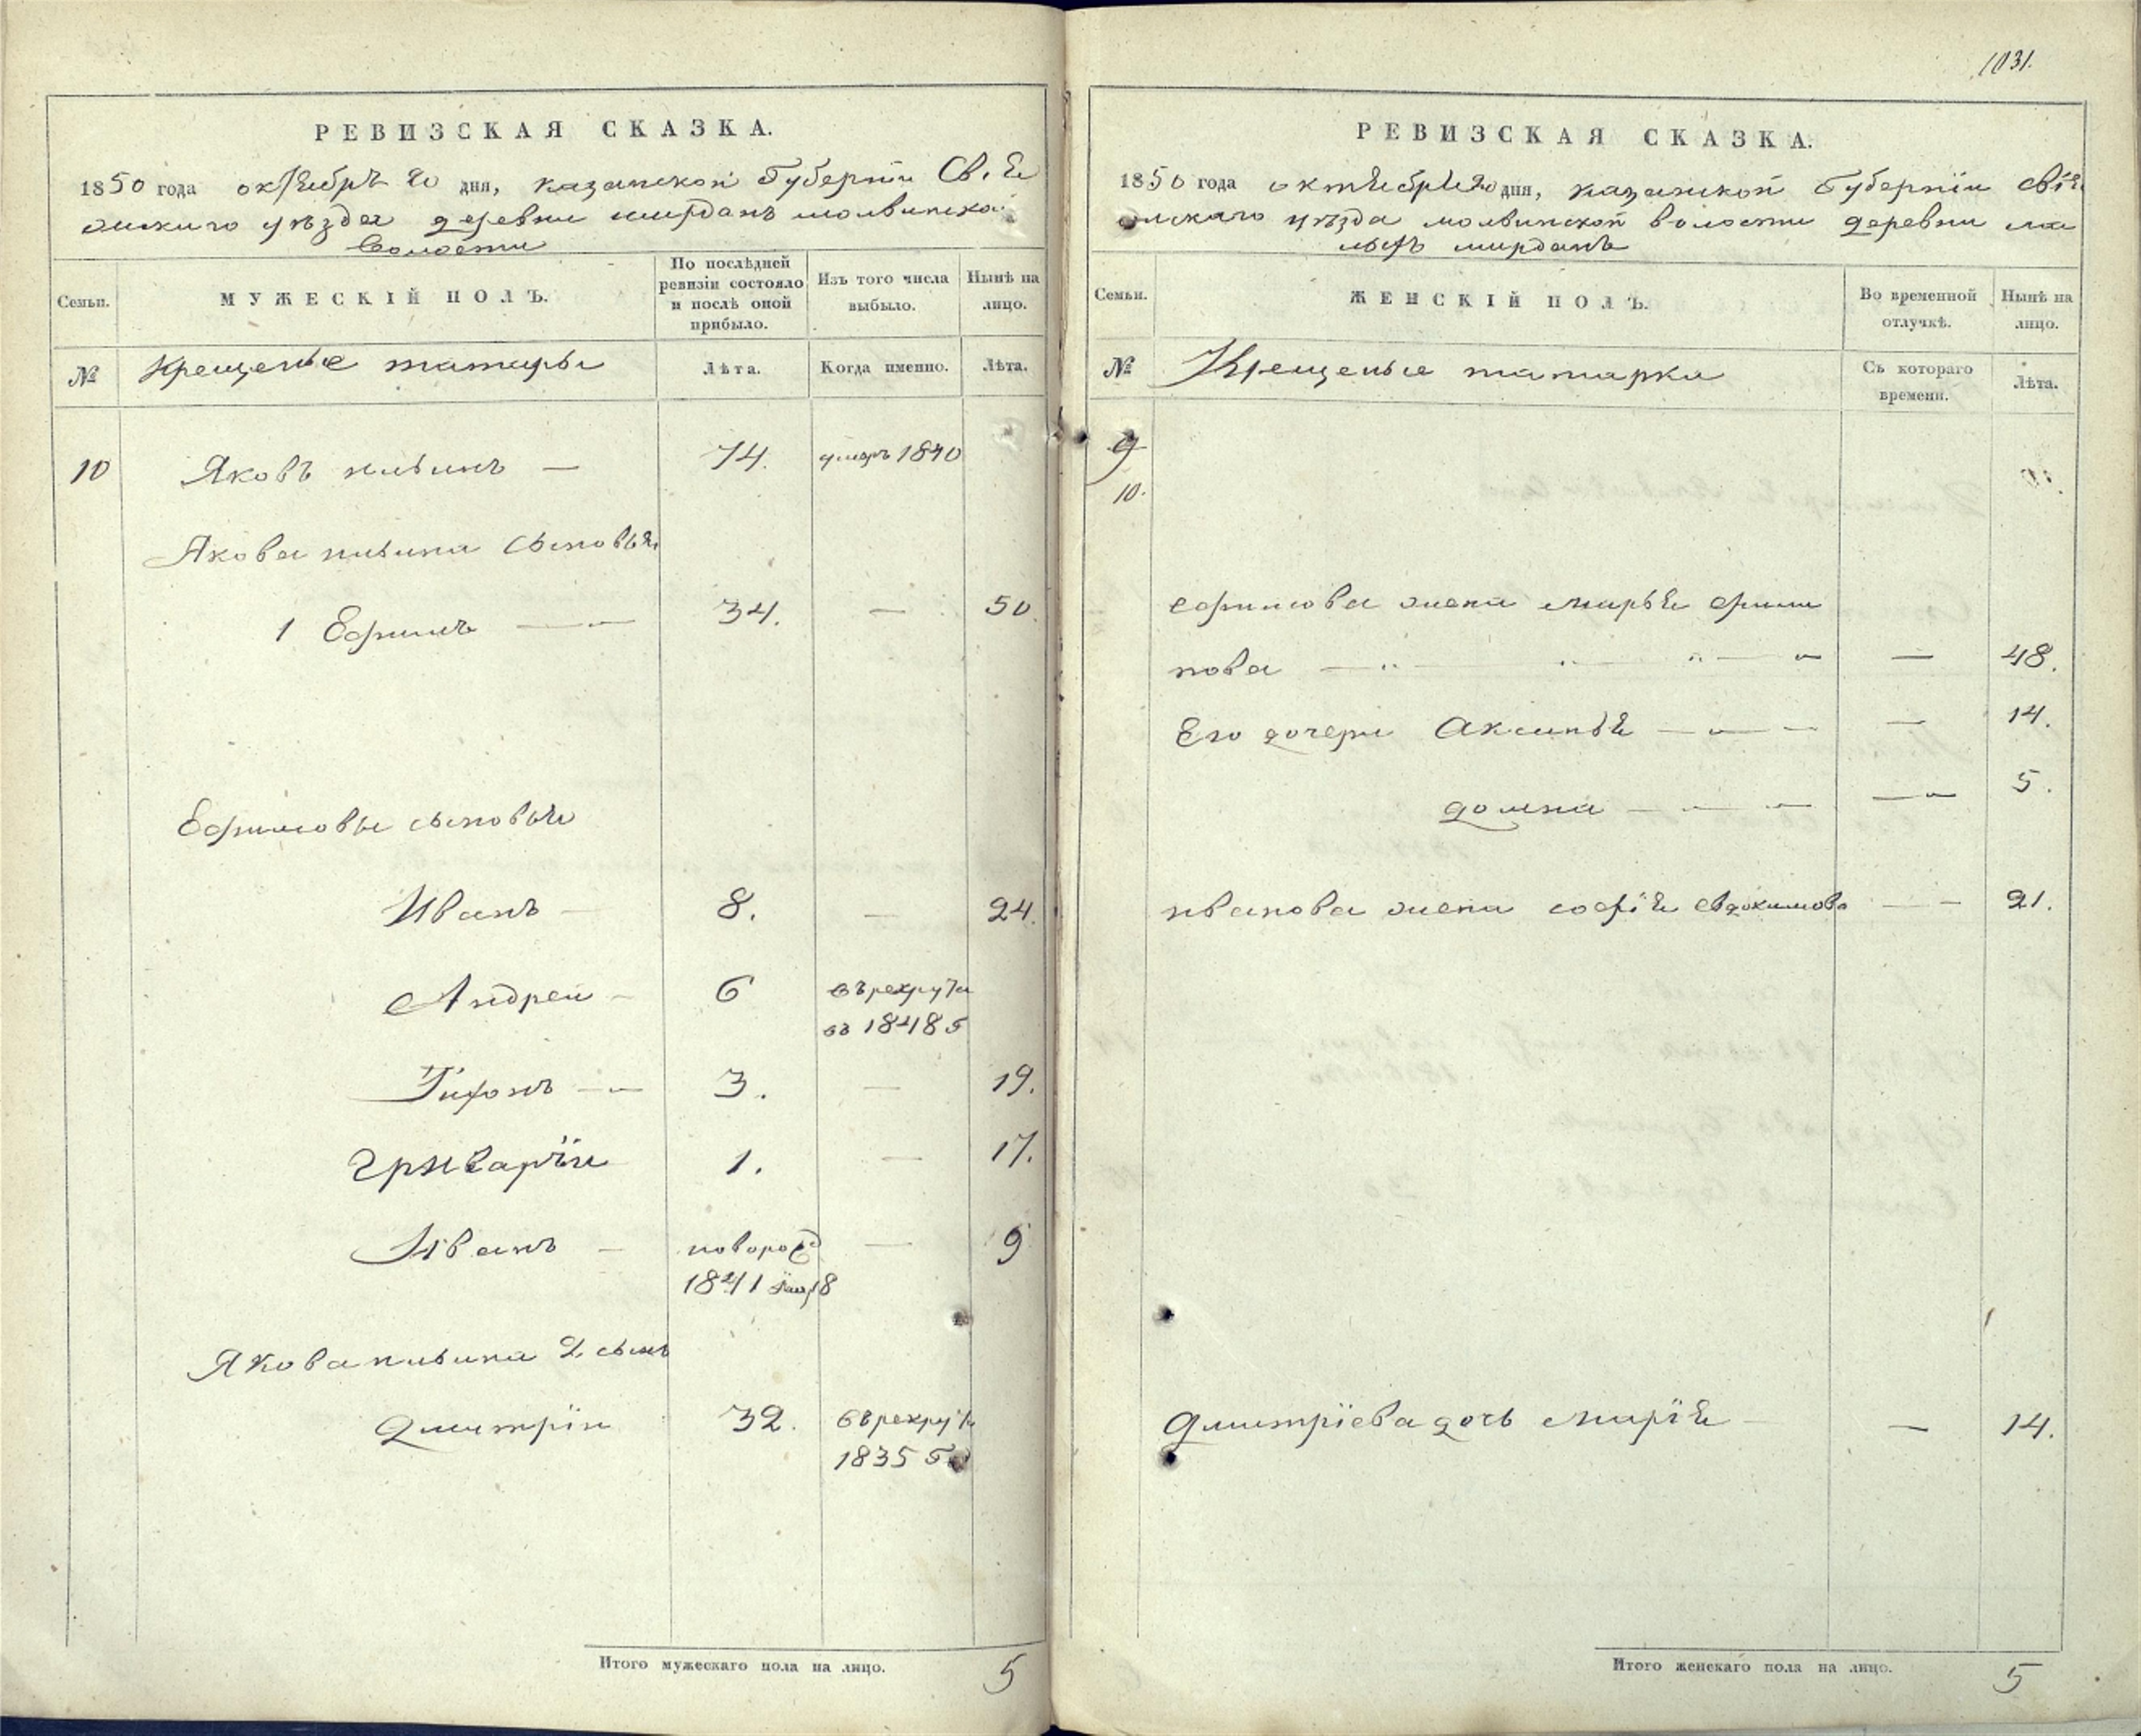 1031.
РЕВИЗСКАЯ СКАЗКА.
1850 года октября 20 дня, казанской Губернии Свия
жского уѣзда деревни ширданъ молвинской
волости
Семьи.
МУЖЕСКІЙ ПОЛЪ.
По послѣдней ревизіи состояло и послѣ оной прибыло.
Изъ того числа выбыло.
Нынѣ на лицо.
№
Крещеные татары
Лѣта.
Когда именно.
Лѣта.
10 Яковъ ильинъ — 74. умеръ 1840
Якова ильина сыновья
1 Ефимъ — 34. — 50.
Ефимовы сыновья
Иванъ — 8. — 24.
Андреи — 6 въ рекруты
въ 1848
Тихонъ — 3. — 19.
григарïи 1. — 17.
Иванъ — новорож
1841 — 9
Якова ильина 2 сынъ
дмитрïи 32. въ рекруты
1835
Итого мужескаго пола на лицо. 5
РЕВИЗСКАЯ СКАЗКА.
1850 года октября 20 дня, казанской Губернïи свiя
жскаго уѣзда молвинской волости деревни ма
лыхъ ширданъ
Семьи.
ЖЕНСКІЙ ПОЛЪ.
Во временной отлучкѣ.
Нынѣ на лицо.
№
Крещеные татарки
Съ котораго времени.
Лѣта.
9
10.
ефимова жена марья фили
пова — — 48.
Его дочери Аксинья — — 14.
домна — — 5.
иванова жена софïя евдокимова — 21.
дмитрïева дочь марïя — 14.
Итого женскаго пола на лицо. 5